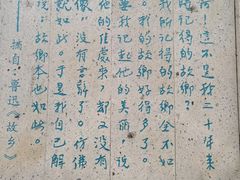 阿！这不是我二十年来
时记得的故鄉？
我所记得的故鄉全不如
我的故鄉好得多了。
要我记起他的美丽，说
他的佳處来，却又没有
像，没有言辞了。仿佛
就如此。于是我自己解
说：故鄉本也如此。
摘自：鲁迅《故乡》